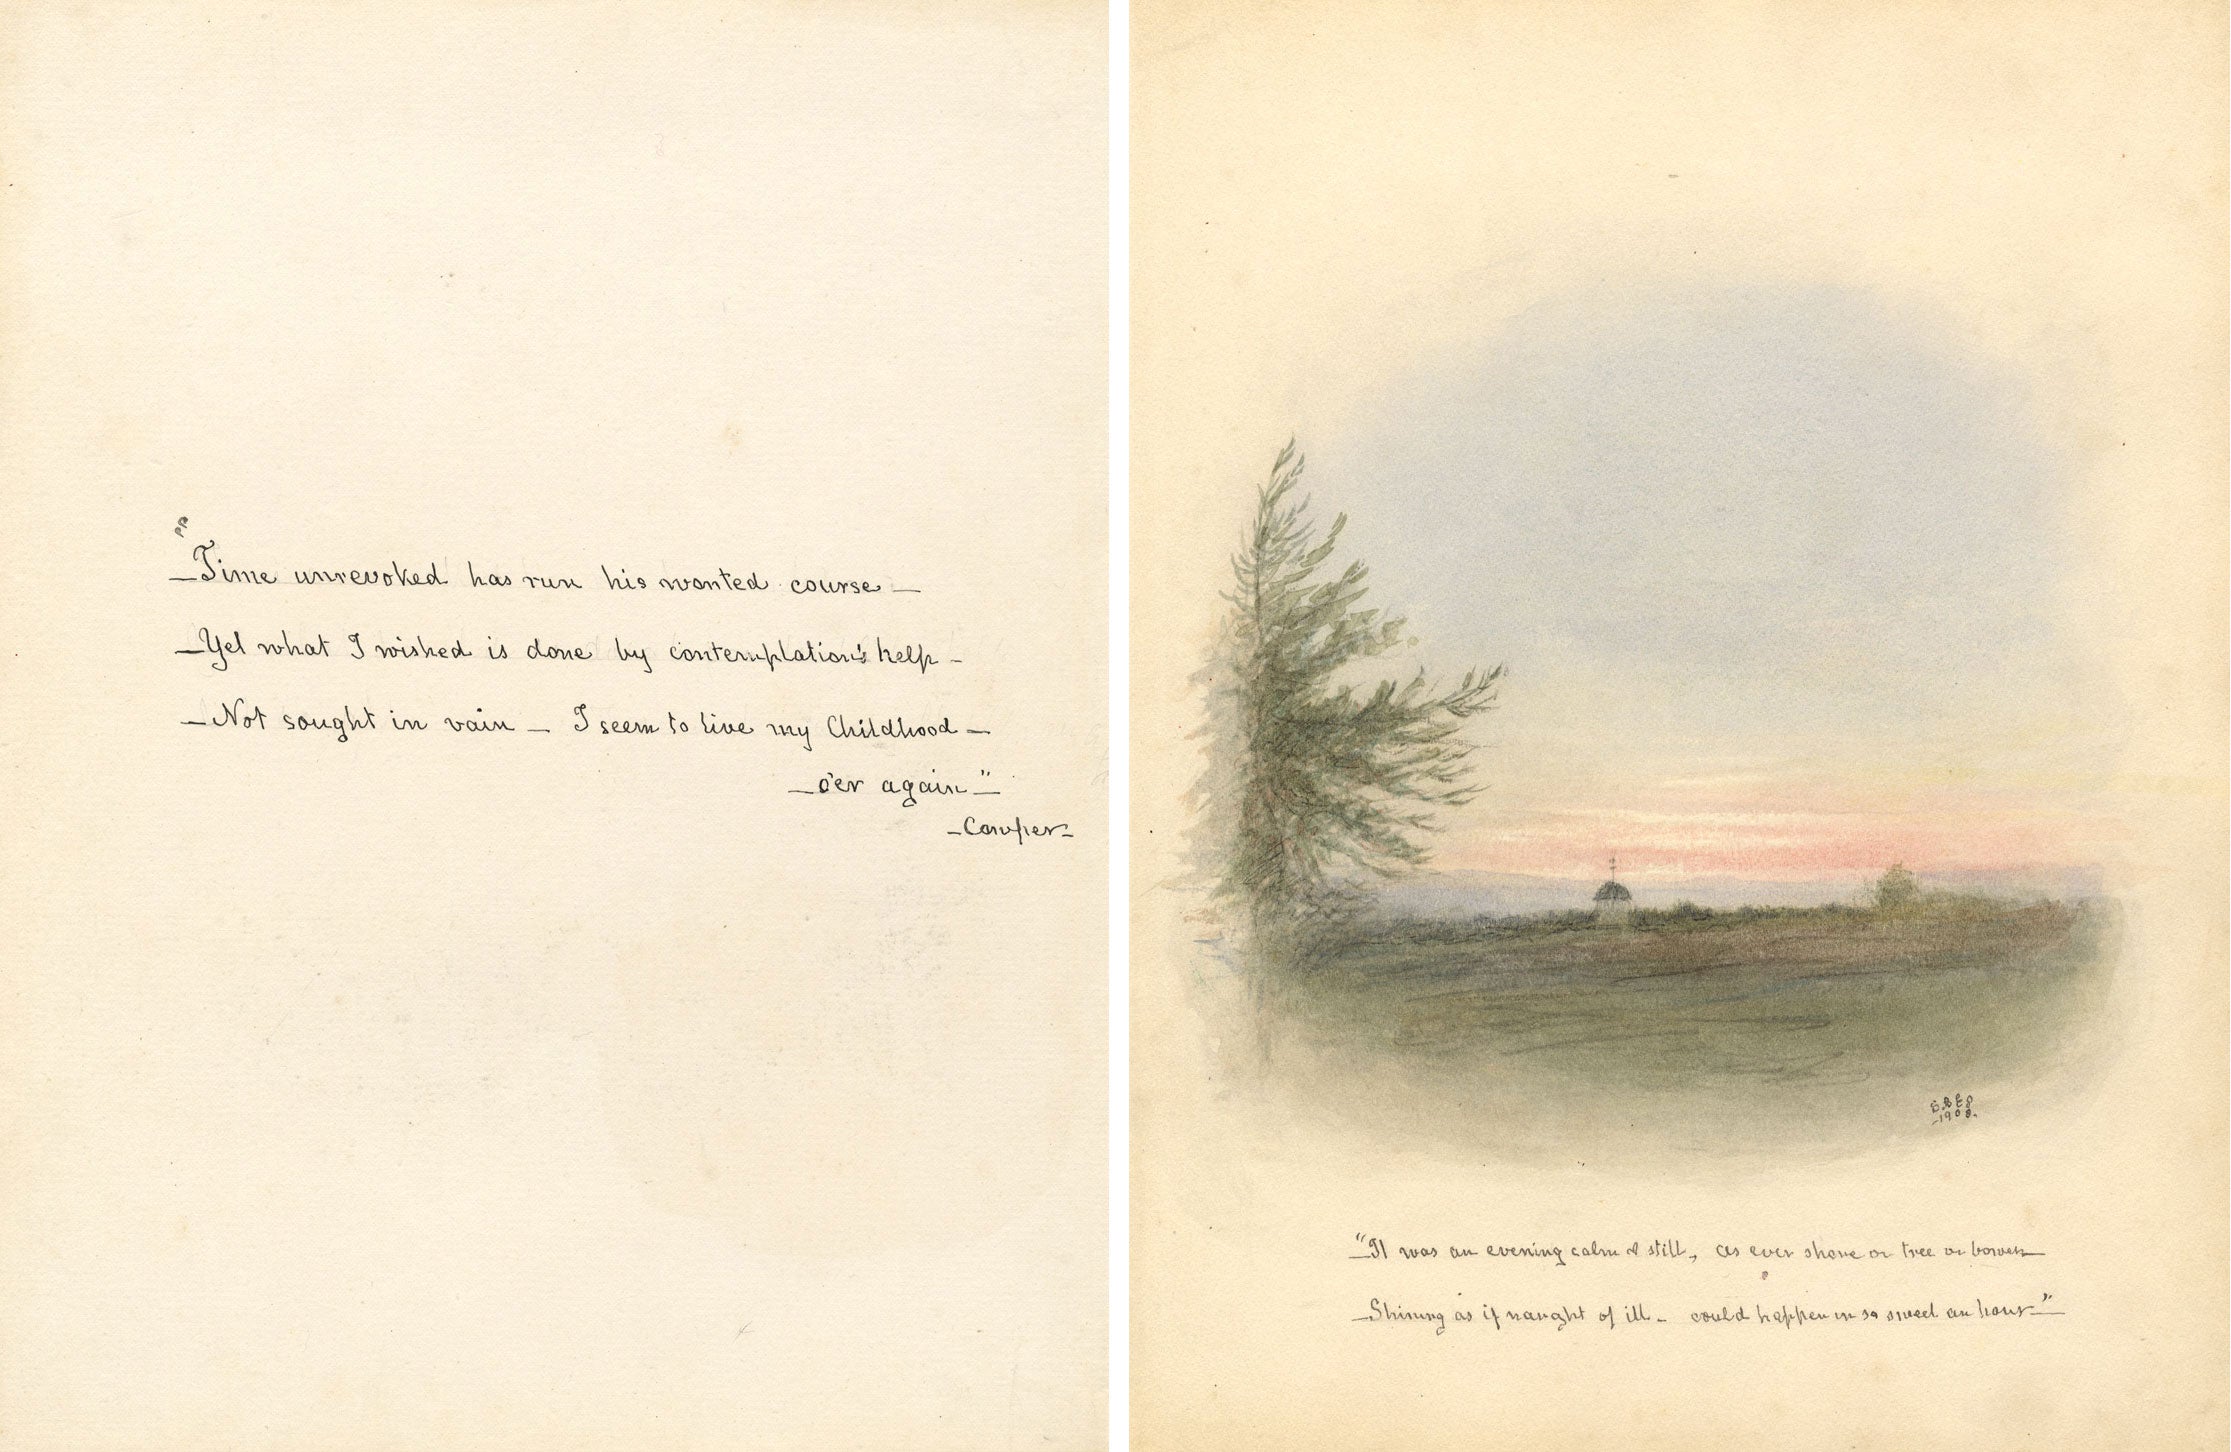 "
—Time unrevoked has run his wonted course—
—Yet what I wished is done by contemplation's help—
—Not sought in vain— I seem to live my Childhood—
—o'er again"—
—Cowper—
1908.
"It was an evening calm & still, as ever shone on tree or bower—
—Shining as if naught of ill— could happen in so sweet an hour—"